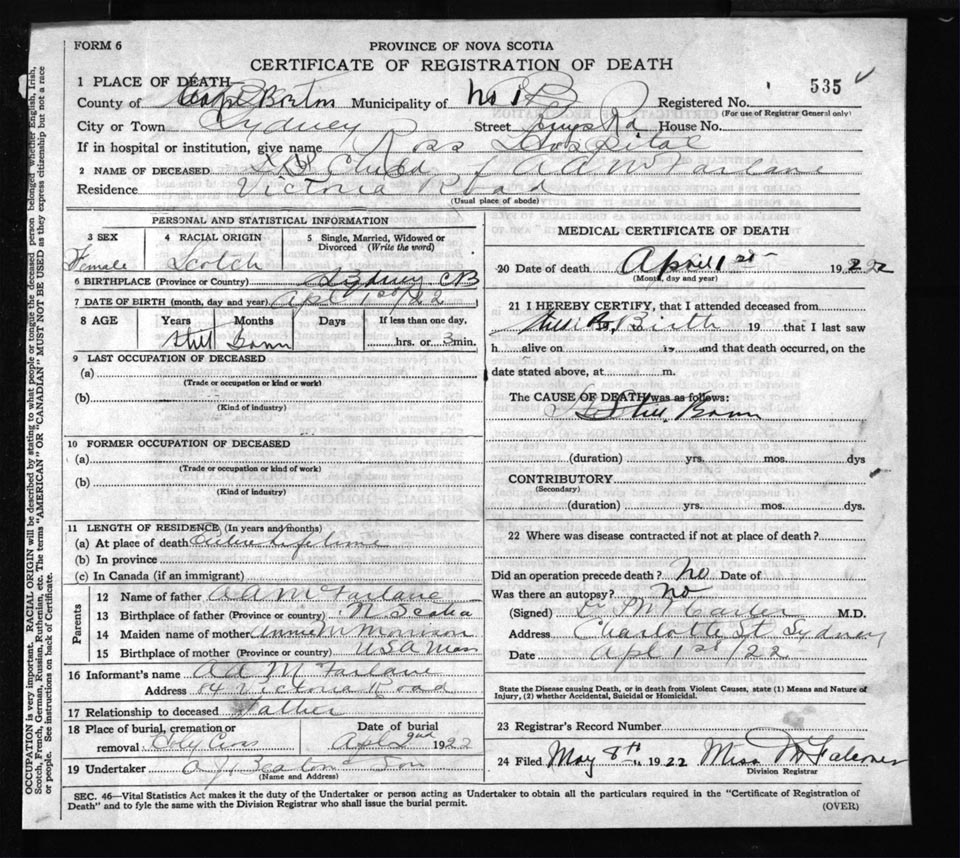 FORM 6
PROVINCE OF NOVA SCOTIA
CERTIFICATE OF REGISTRATION OF DEATH
535
1 PLACE OF DEATH—
County of Cape Breton Municipality of No 1 Registered No.
(For use of Registrar General only)
City or Town Sydney Street Kings Rd House No.
If in hospital or institution, give name Ross Hospital
2 NAME OF DECEASED Child of A A McFarlane
Residence Victoria Road
(Usual place of abode)
PERSONAL AND STATISTICAL INFORMATION
3 SEX
Female
4 RACIAL ORIGIN
Scotch
5 Single, Married, Widowed or Divorced (Write the word)
6 BIRTHPLACE (Province or Country) Sydney CB
7 DATE OF BIRTH (month, day and year) Apl 1st/22
8 AGE Years Months Days If less than one day,
Still Born hrs. or 3 min.
9 LAST OCCUPATION OF DECEASED
(a)
(Trade or occupation or kind or work)
(b)
(Kind of industry)
10 FORMER OCCUPATION OF DECEASED
(a)
(Trade or occupation or kind of work)
(b)
(Kind of industry)
11 LENGTH OF RESIDENCE (In years and months)
(a) At place of death Entire lifetime
(b) In province
(c) In Canada (if an immigrant)
Parents
12 Name of father A A McFarlane
13 Birthplace of father (Province or country) N Scotia
14 Maiden name of mother Annie M Morrison
15 Birthplace of mother (Province or country) USA Mass
16 Informant's name A A McFarlane
Address 84 Victoria Road
17 Relationship to deceased Father
18 Place of burial, cremation or removal Holy Cross
Date of burial
Apl 2nd 1922
19 Undertaker A J Beaton & Son
(Name and Address)
MEDICAL CERTIFICATE OF DEATH
20 Date of death April 1st 1922
(Month, day and year)
21 I HEREBY CERTIFY, that I attended deceased from
Still Birth 19 that I last saw
h alive on 19 and that death occurred, on the
date stated above, at m.
The CAUSE OF DEATH was as follows:
Still Born
(duration) yrs. mos. dys
CONTRIBUTORY
(Secondary)
(duration) yrs. mos. dys.
22 Where was disease contracted if not at place of death?
Did an operation precede death? No Date of
Was there an autopsy? No
(Signed) Dr Carter M.D.
Address Charlotte St Sydney
Date Apl 1st/22
State the Disease causing Death, or in death from Violent Causes, state (1) Means and Nature of
Injury, (2) whether Accidental, Suicidal or Homicidal.
23 Registrar's Record Number
24 Filed May 8th 1922 Miss M Falconer
Division Registrar
SEC. 46—Vital Statistics Act makes it the duty of the Undertaker or person acting as Undertaker to obtain all the particulars required in the "Certificate of Registration of
Death" and to fyle the same with the Division Registrar who shall issue the burial permit.
(OVER)
OCCUPATION is very important. RACIAL ORIGIN will be described by stating to what people or tongue the deceased person belonged, whether English, Irish,
Scotch, French, German, Russian, Ruthenian, etc. The terms "AMERICAN" OR "CANADIAN" MUST NOT BE USED as they express citizenship but not a race
or people. See instructions on back of Certificate.